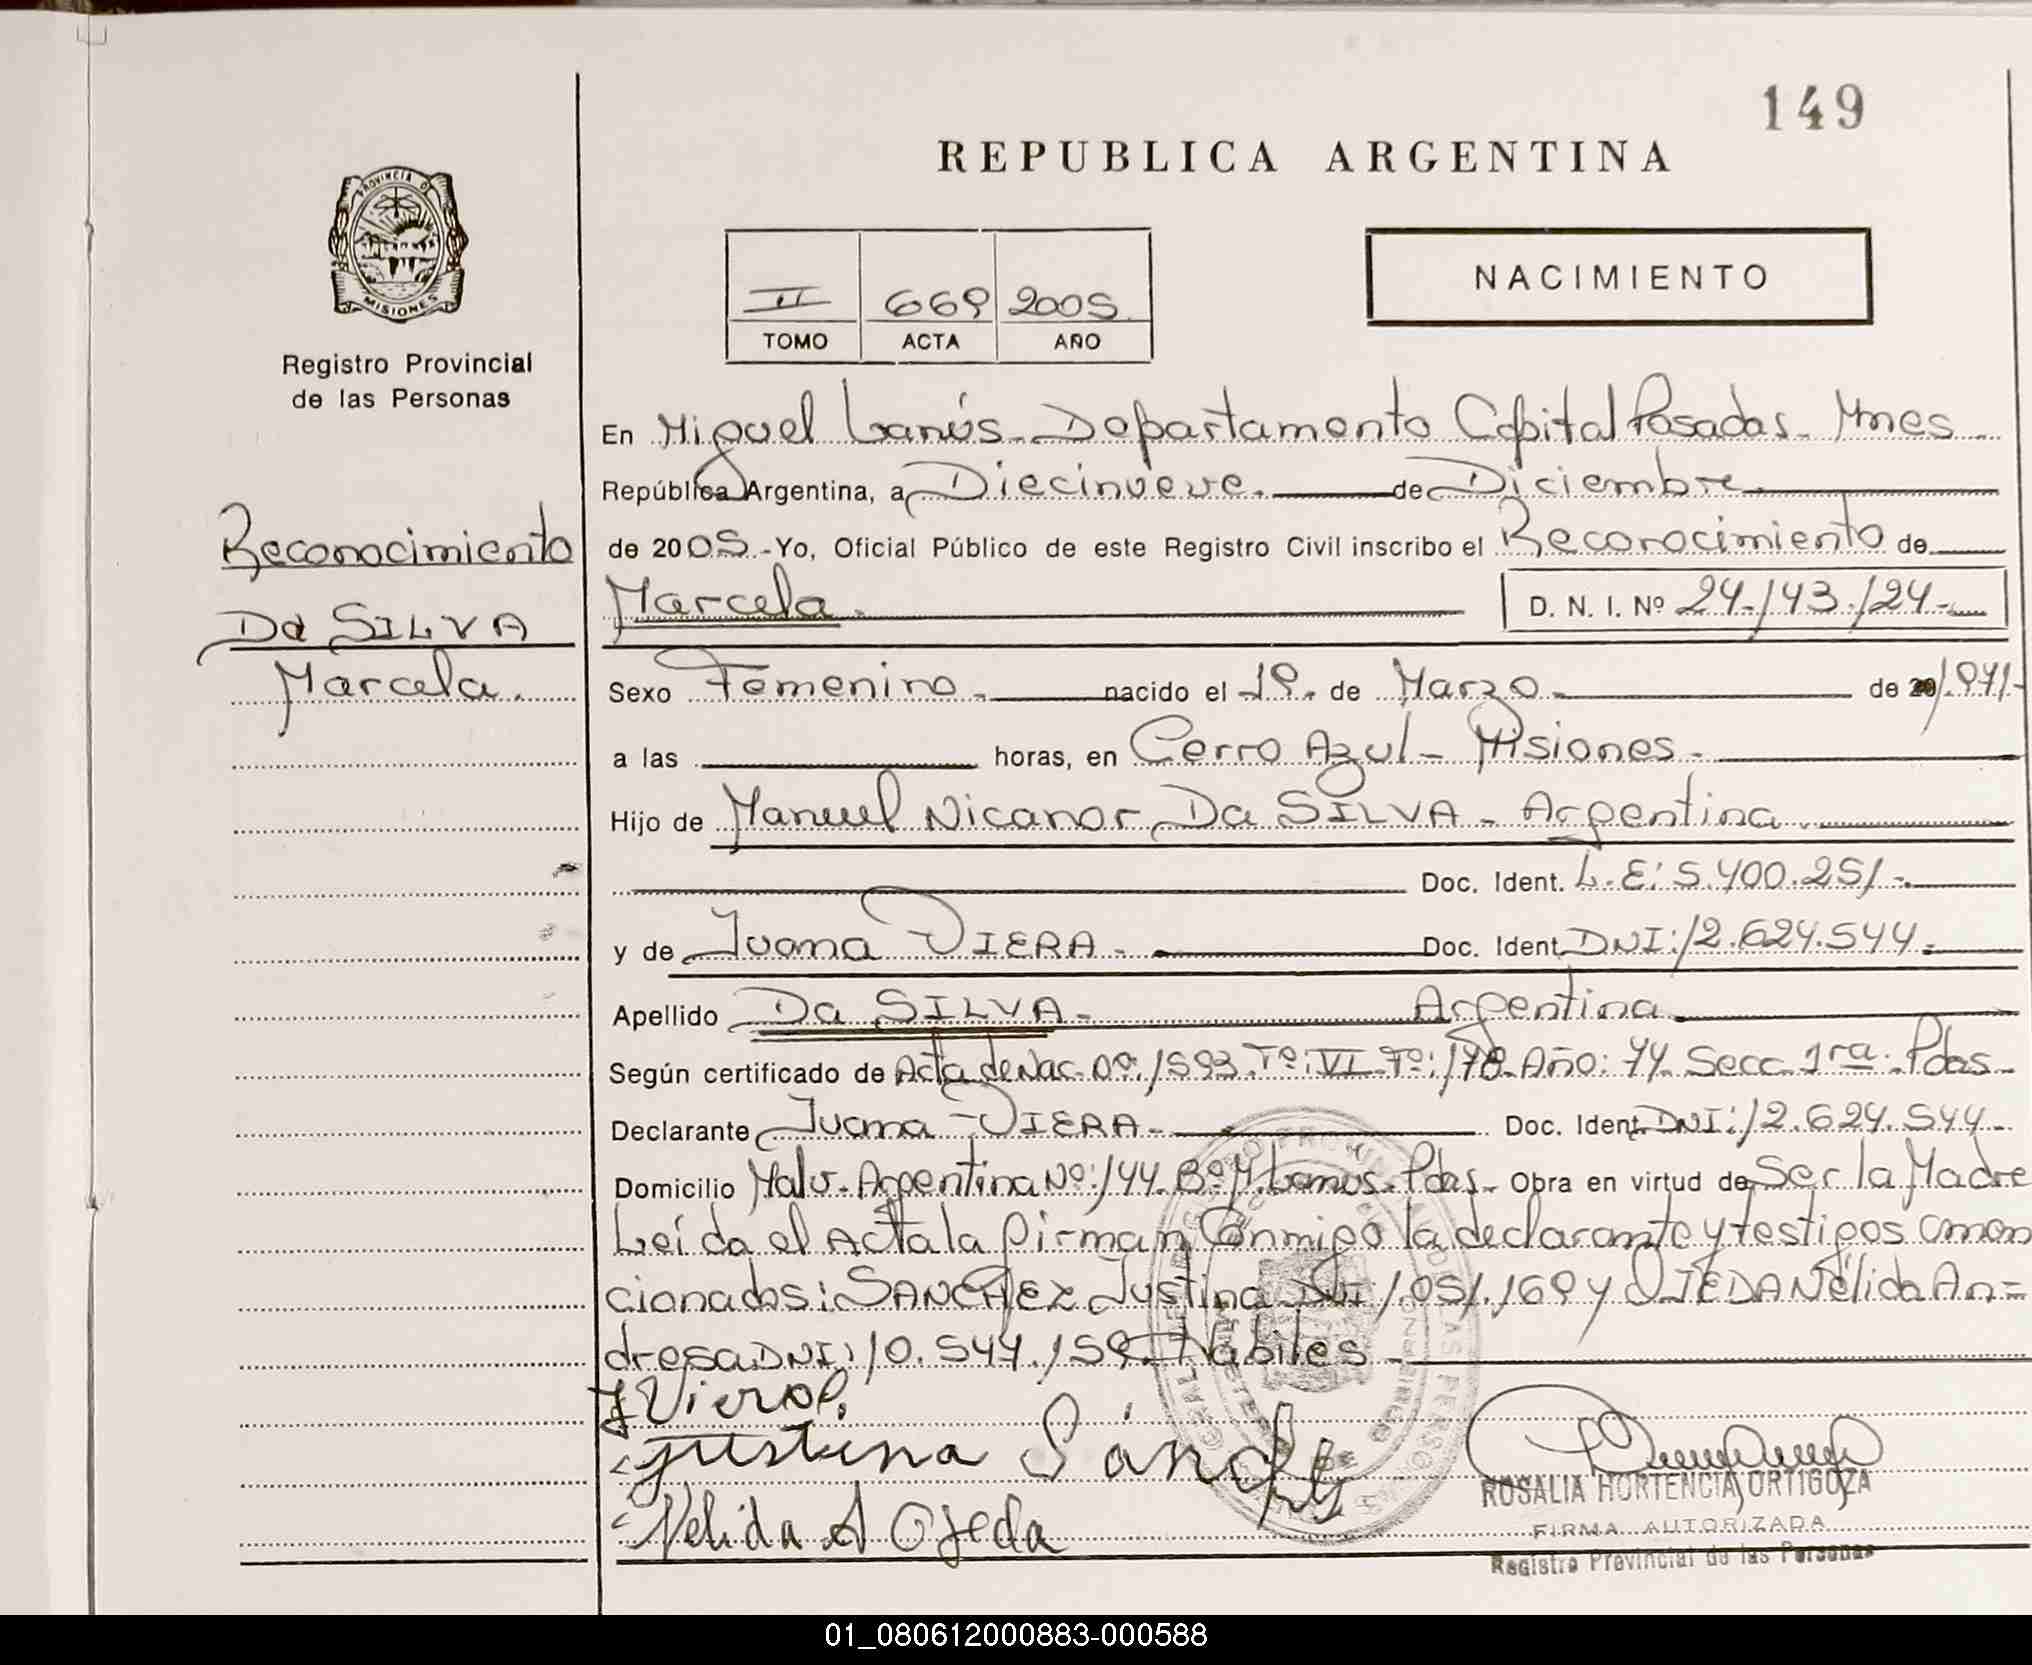 149
REPUBLICA ARGENTINA
PROVINCIA DE MISIONES
II 669 2005
TOMO ACTA AÑO
NACIMIENTO
Registro Provincial
de las Personas
En Miguel Lanús - Departamento Capital Posadas - Mnes
República Argentina, a Diecinueve. de Diciembre.
de 2005 - Yo, Oficial Público de este Registro Civil inscribo el Reconocimiento de
Marcela. D. N. I. Nº 24.143.124.
Reconocimiento
Da SILVA
Marcela.
Sexo Femenino. nacido el 19. de Marzo de 20 1.971-
a las horas, en Cerro Azul - Misiones.
Hijo de Manuel Nicanor Da SILVA - Argentina
Doc. Ident. L.E: 5.400.251-
y de Juana VIERA. Doc. Ident. DNI: 12.624.544.
Apellido Da SILVA - Argentina
Según certificado de Acta de Nac. Nº: 1593. Tº: VI. Fº: 178. Año: 74. Secc. 1ra. Pdas.
Declarante Juana VIERA - Doc. Ident. DNI: 12.624.544.
Domicilio Malv. Argentina Nº: 144. Bº M. Lanús. Pdas. Obra en virtud de Ser la Madre
Leída el Acta la firman Conmigo la declarante y testigos
cionados: SANCHEZ Justina DNI 1.051.169 y OJEDA Nélida An=
dresa DNI: 10.544.159. Hábiles
J Viera
Justina Sánchez
Nelida A Ojeda
ROSALIA HORTENCIA ORTIGOZA
FIRMA AUTORIZADA
Registro Provincial de las Personas
01_080612000883-000588